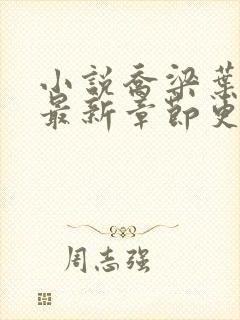 小説喬梁葉
最新章節更
周志强